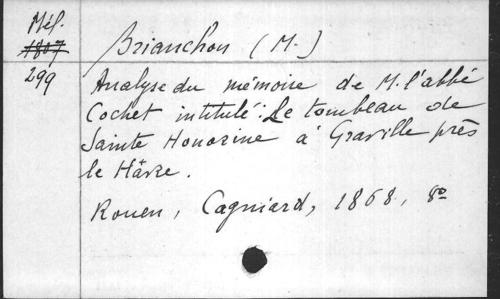 Mél.
1807
299
Brianchon (M.)
Analyse du mémoire de M. l'abbé
Cochet intitulé: Le tombeau de
Sainte Honorine à Graville près
le Hâvre.
Rouen, Cagniard, 1868, 8º